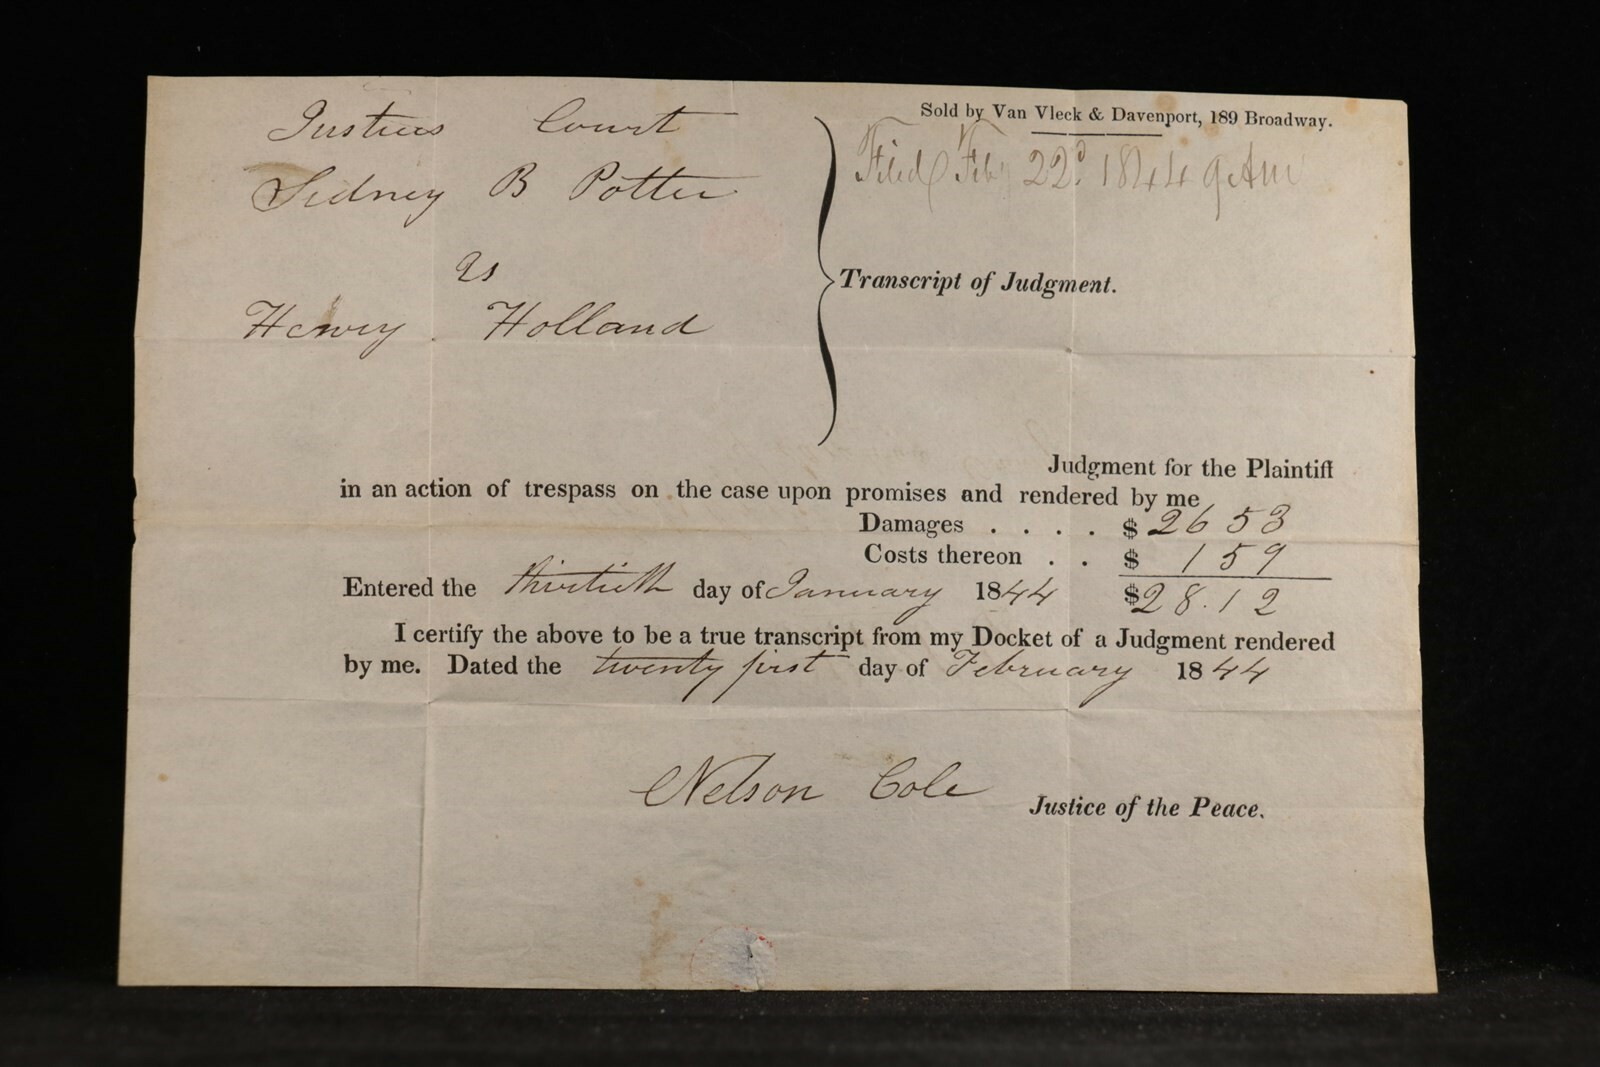 Sold by Van Vleck & Davenport, 189 Broadway.
Justices Court
Filed Feby 22d 1844 9 AM
Sidney B Potter
vs
Transcript of Judgment.
Henry Holland
Judgment for the Plaintiff
in an action of trespass on the case upon promises and rendered by me
Damages . . . . $ 26 53
Costs thereon . . $ 1 59
Entered the thirtieth day of January 1844 $28.12
I certify the above to be a true transcript from my Docket of a Judgment rendered
by me. Dated the twenty first day of February 1844
Nelson Cole Justice of the Peace.